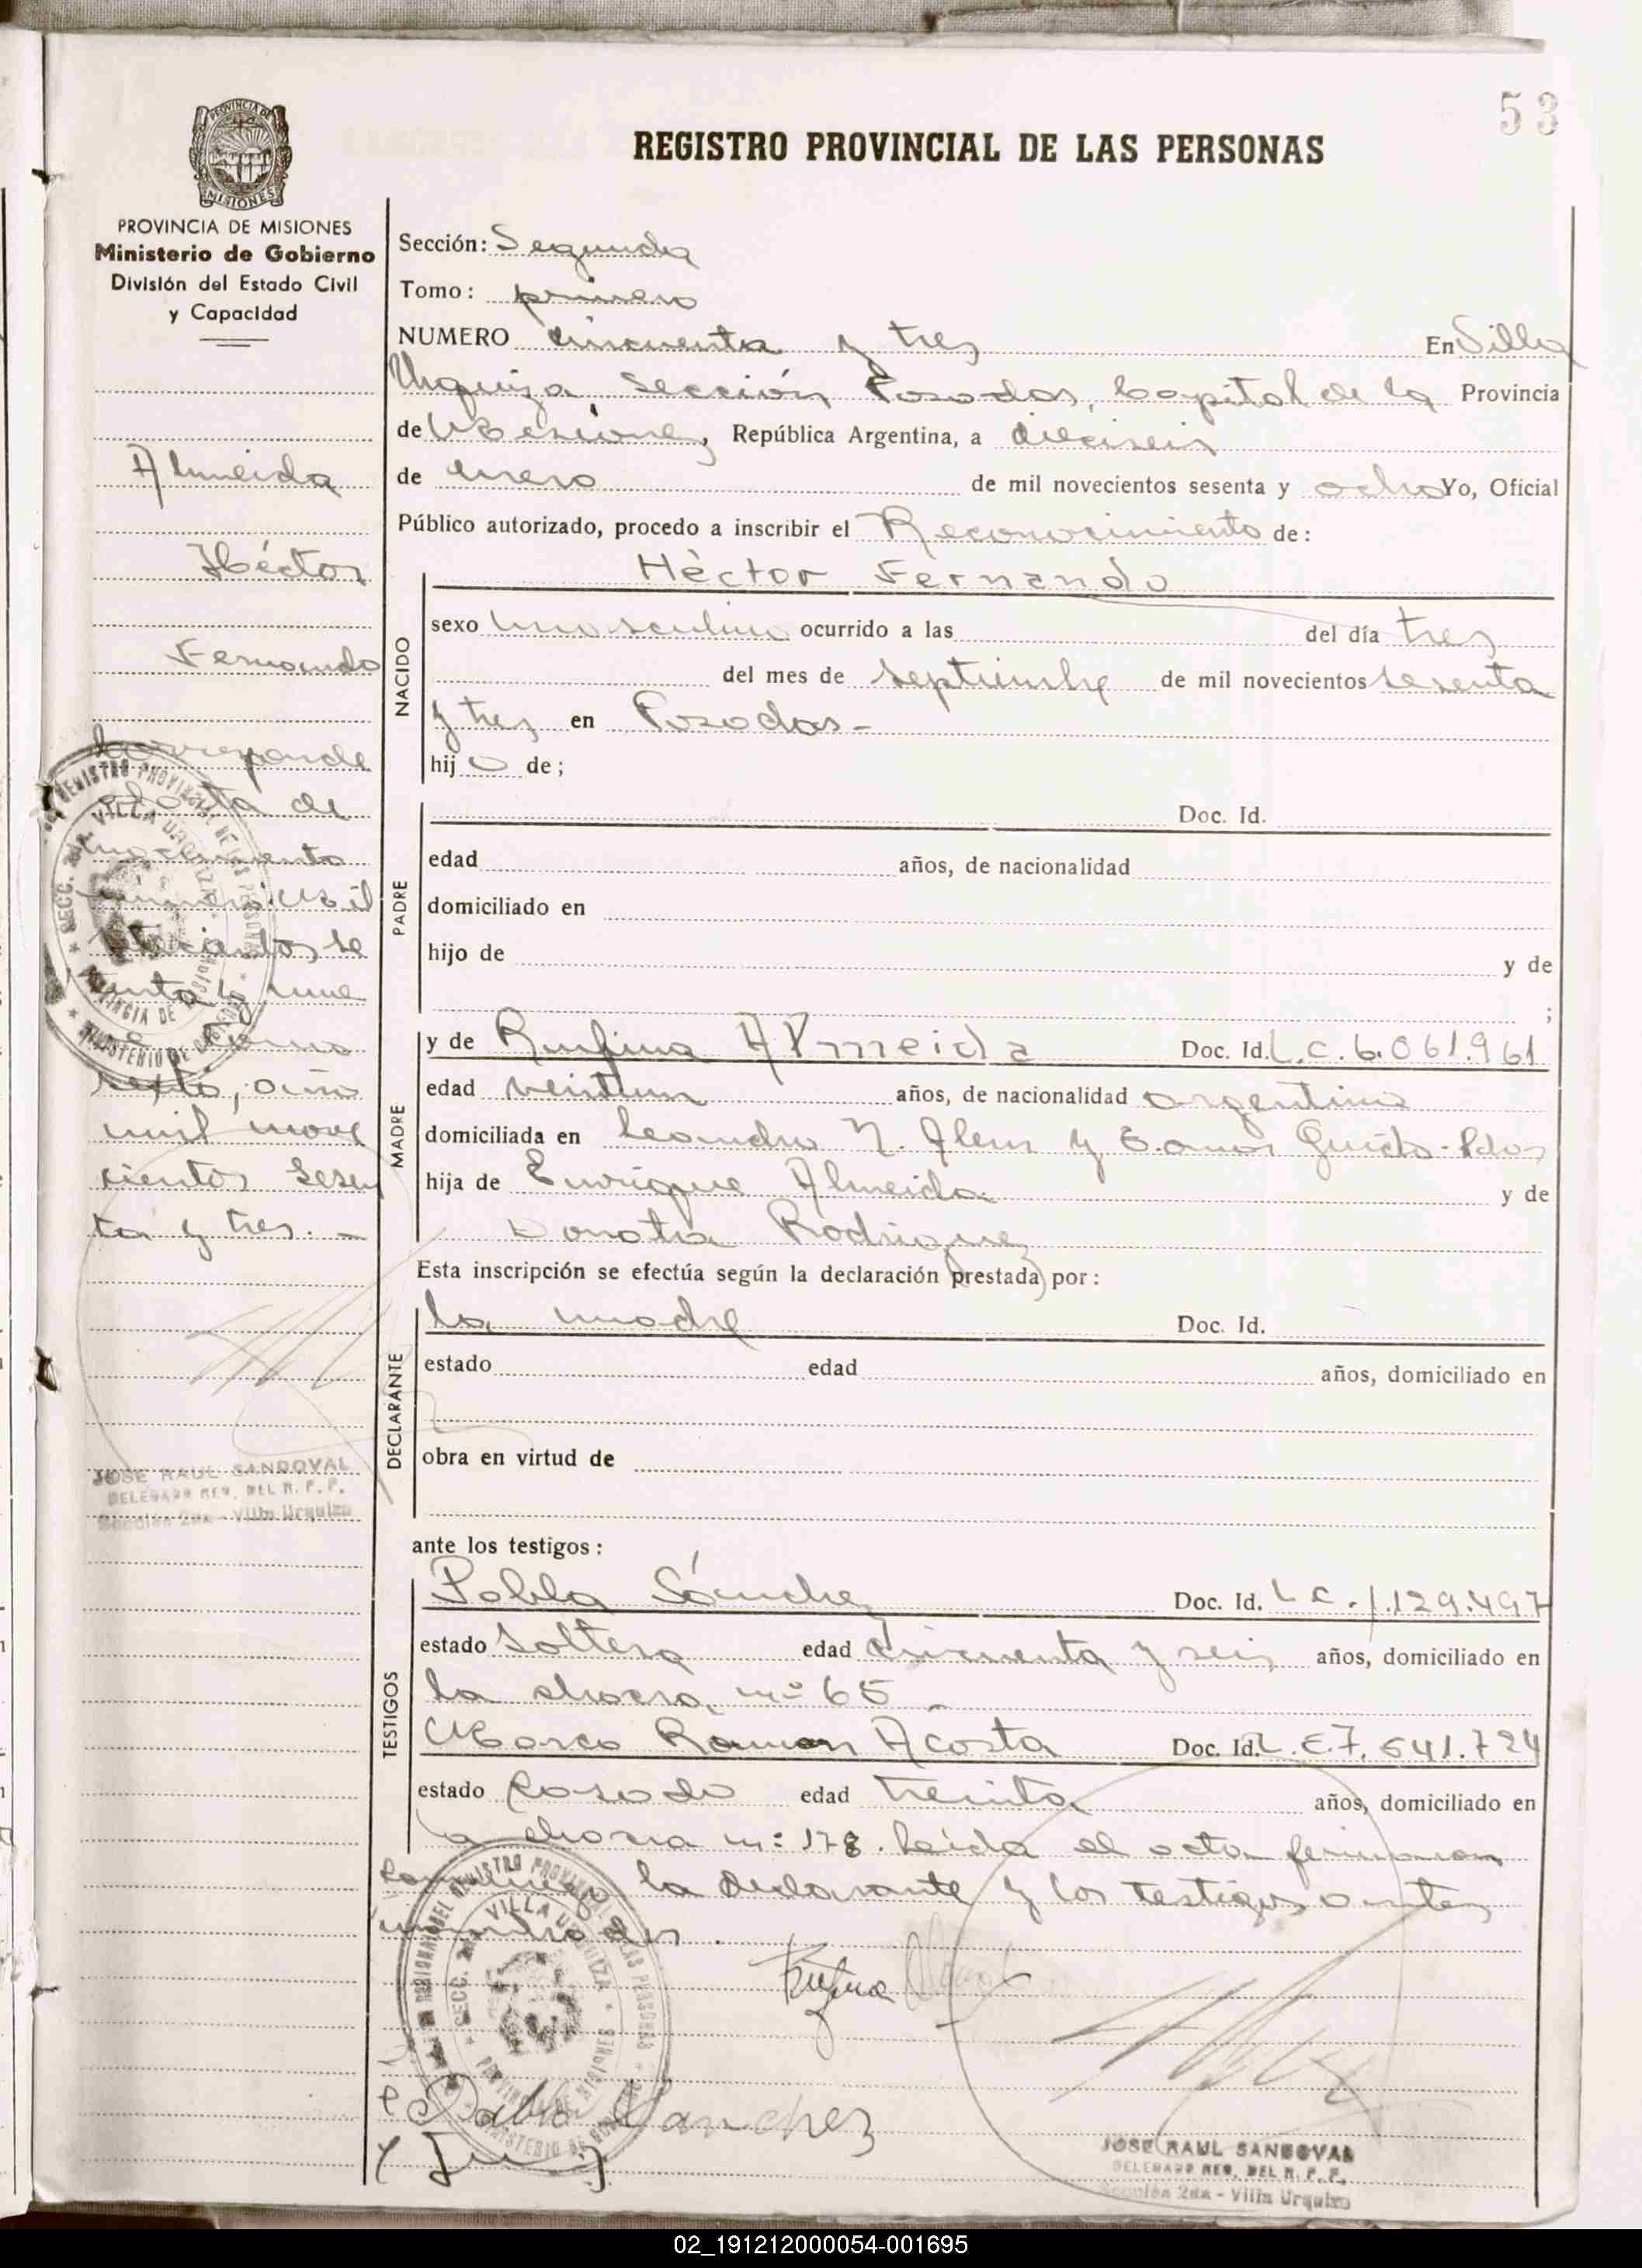 53
PROVINCIA DE
MISIONES
REGISTRO PROVINCIAL DE LAS PERSONAS
PROVINCIA DE MISIONES
Ministerio de Gobierno
División del Estado Civil
y Capacidad
Almeida
Héctor
Fernando
Corresponde
acta de
nacimiento
número: Mil
se
tomo
sexto, año
mil nove
cientos sesen
ta y tres. -
JOSE RAUL SANDOVAL
DELEGADO REG. DEL R. P. P.
Sección 2da - Villa Urquiza
Sección: Segunda
Tomo: primero
NUMERO cincuenta y tres En Villa
Urquiza Sección Posadas, Capital de la Provincia
de Misiones, República Argentina, a dieciseis
de enero de mil novecientos sesenta y ocho Yo, Oficial
Público autorizado, procedo a inscribir el Reconocimiento de:
Hèctor Fernando
NACIDO
sexo masculino ocurrido a las del día tres
del mes de septiembre de mil novecientos sesenta
y tres en Posadas-
hijo de;
PADRE
Doc. Id.
edad años, de nacionalidad
domiciliado en
hijo de y de
;
MADRE
y de Rufina Almeida Doc. Id. L.C. 6.061.961
edad veintiun años, de nacionalidad argentina
domiciliada en Leandro N. Alem y E. Guido-Pdas
hija de Enrique Almeida y de
Donata Rodriguez
Esta inscripción se efectúa según la declaración prestada por:
DECLARANTE
la madre Doc. Id.
estado edad años, domiciliado en
obra en virtud de
ante los testigos:
TESTIGOS
Pabla Sánchez Doc. Id. L.C. 1.129.497
estado soltera edad cincuenta y seis años, domiciliado en
la chacra nº 65
Marco Ramon Acosta Doc. Id. L.E. 7.641.724
estado Casado edad treinta años, domiciliado en
la chacra nº: 178. Leída el acta firmaron
la declarante y los testigos antes
Rufina
Pabla Sanchez
REGISTRO PROVINCIAL DE LAS PERSONAS
SECC. 2da. VILLA URQUIZA
PROVINCIA DE MISIONES
JOSE RAUL SANDOVAL
DELEGADO REG. DEL R. P. P.
Sección 2da - Villa Urquiza
02_191212000054-001695